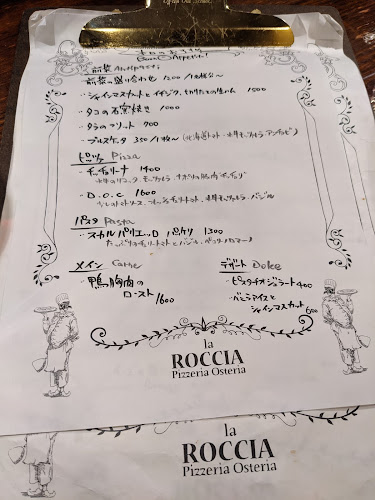 Buon Appetito!
前菜 Antipasti
前菜の盛り合わせ 1200 /1名様〜
・シャインマスカットとイチジク、切りたての生ハム 1500
・タコの石窯焼き 1000
・タラのフリット 900
・ブルスケッタ 350/1ケ〜(北海道トマト・水牛モッツァレラ・アンチョビ)
ピッツァ Pizza
・チッチョリーナ 1900
・D.O.C 1600
パスタ Pasta
・スカルパリエッロ パッケリ 1300
メイン Carne
・鴨胸肉の
ロースト
1600
デザート Dolce
・ピスタチオジェラート 400
・バニラアイスと
シャインマスカット 600
la
ROCCIA
Pizzeria Osteria
la
ROCCIA
Pizzeria Osteria